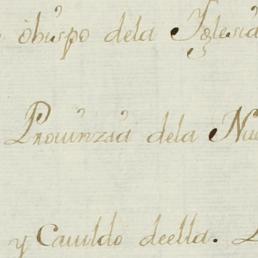 obispo dela Iglesia
Prouinzia dela Nu
y Cauildo deella.